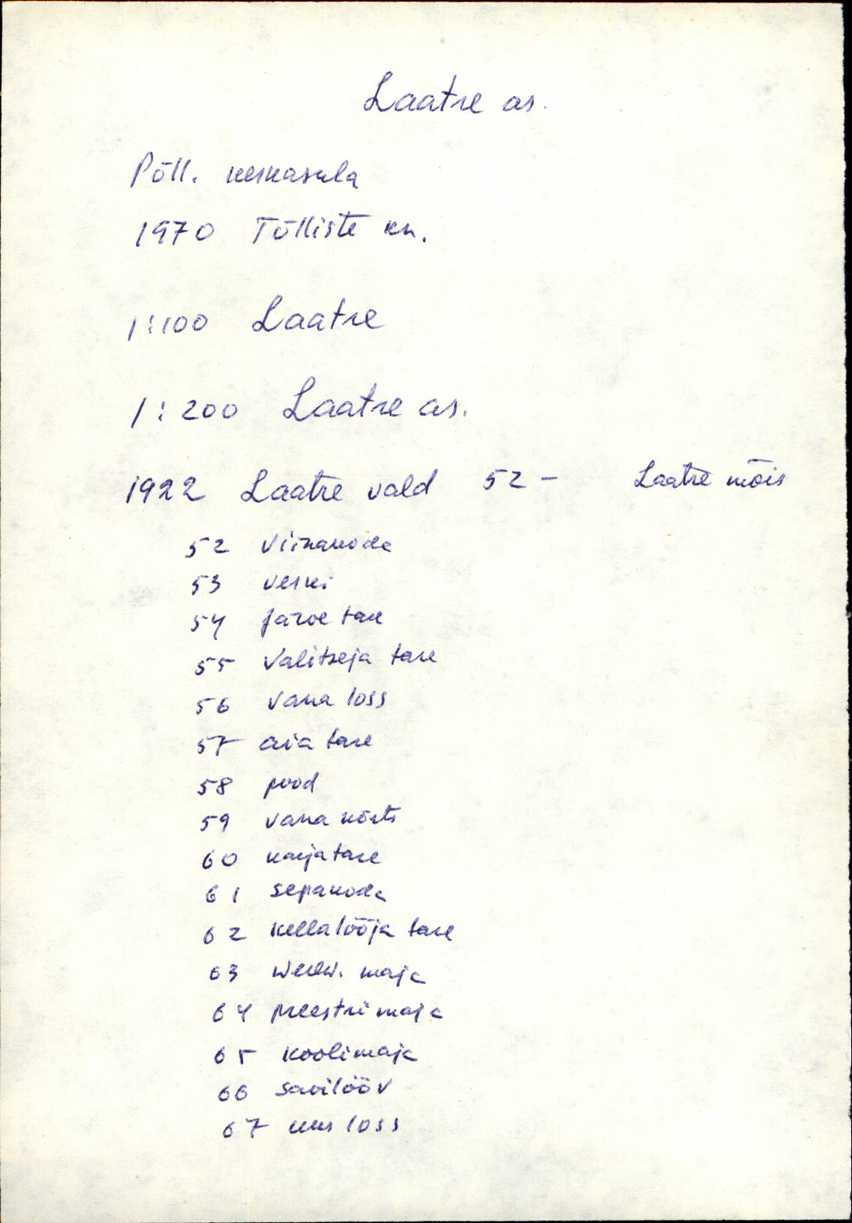 Laatre as.
Põll. keskasula
1970 Tõlliste kn.
1:100 Laatre
1:200 Laatre as.
1922 Laatre vald 52 - Laatre mõis
52 viinakoda
53 veski
54 järve tare
55 valitseja tare
56 vana loss
57 aia tare
58 pood
59 vana kõrts
60 karjatare
61 sepakoda
62 kellalööja tare
63 maja
64 preestri maja
65 koolimaja
66 savilööv
67 uus loss